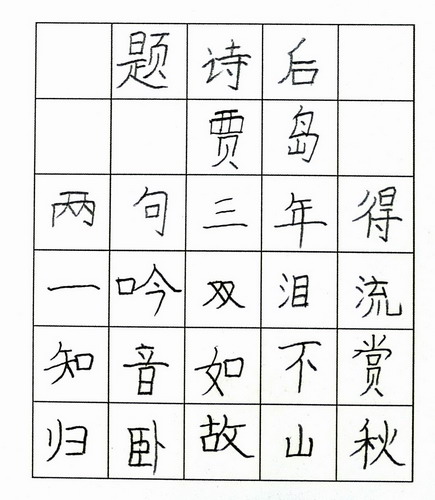 题诗后
贾岛
两句三年得
一吟双泪流
知音如不赏
归卧故山秋